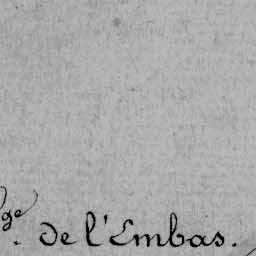 ge. de l'Embas.